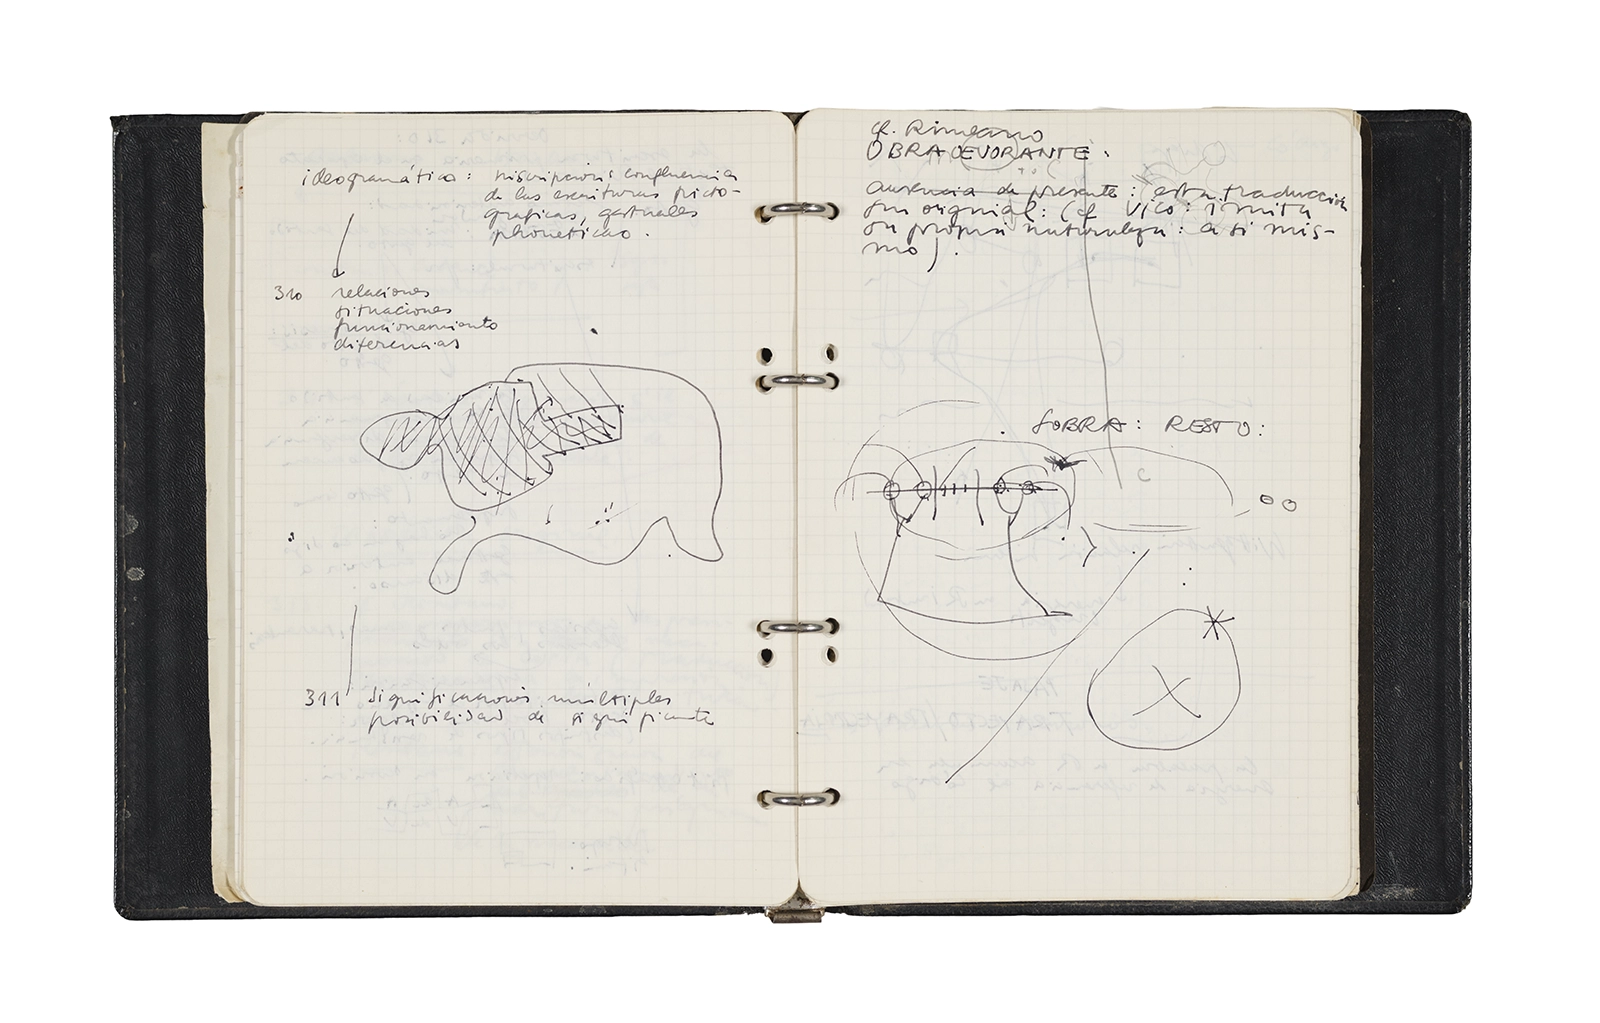 ideogramático: inscripcions confluencia
de las escrituras picto-
graficas, gestuales
phoneticao.
310 relaciones
situaciones
funcionamiento
diferencias
311 significaciones múltiples
posibilidad de significante
cf.
OBRA DEVORANTE.
ausencia de presente: (esta traducción
sin original: (cf Vico: imita
su propia naturaleza: a si mis-
mo).
SOBRA: RESTO: